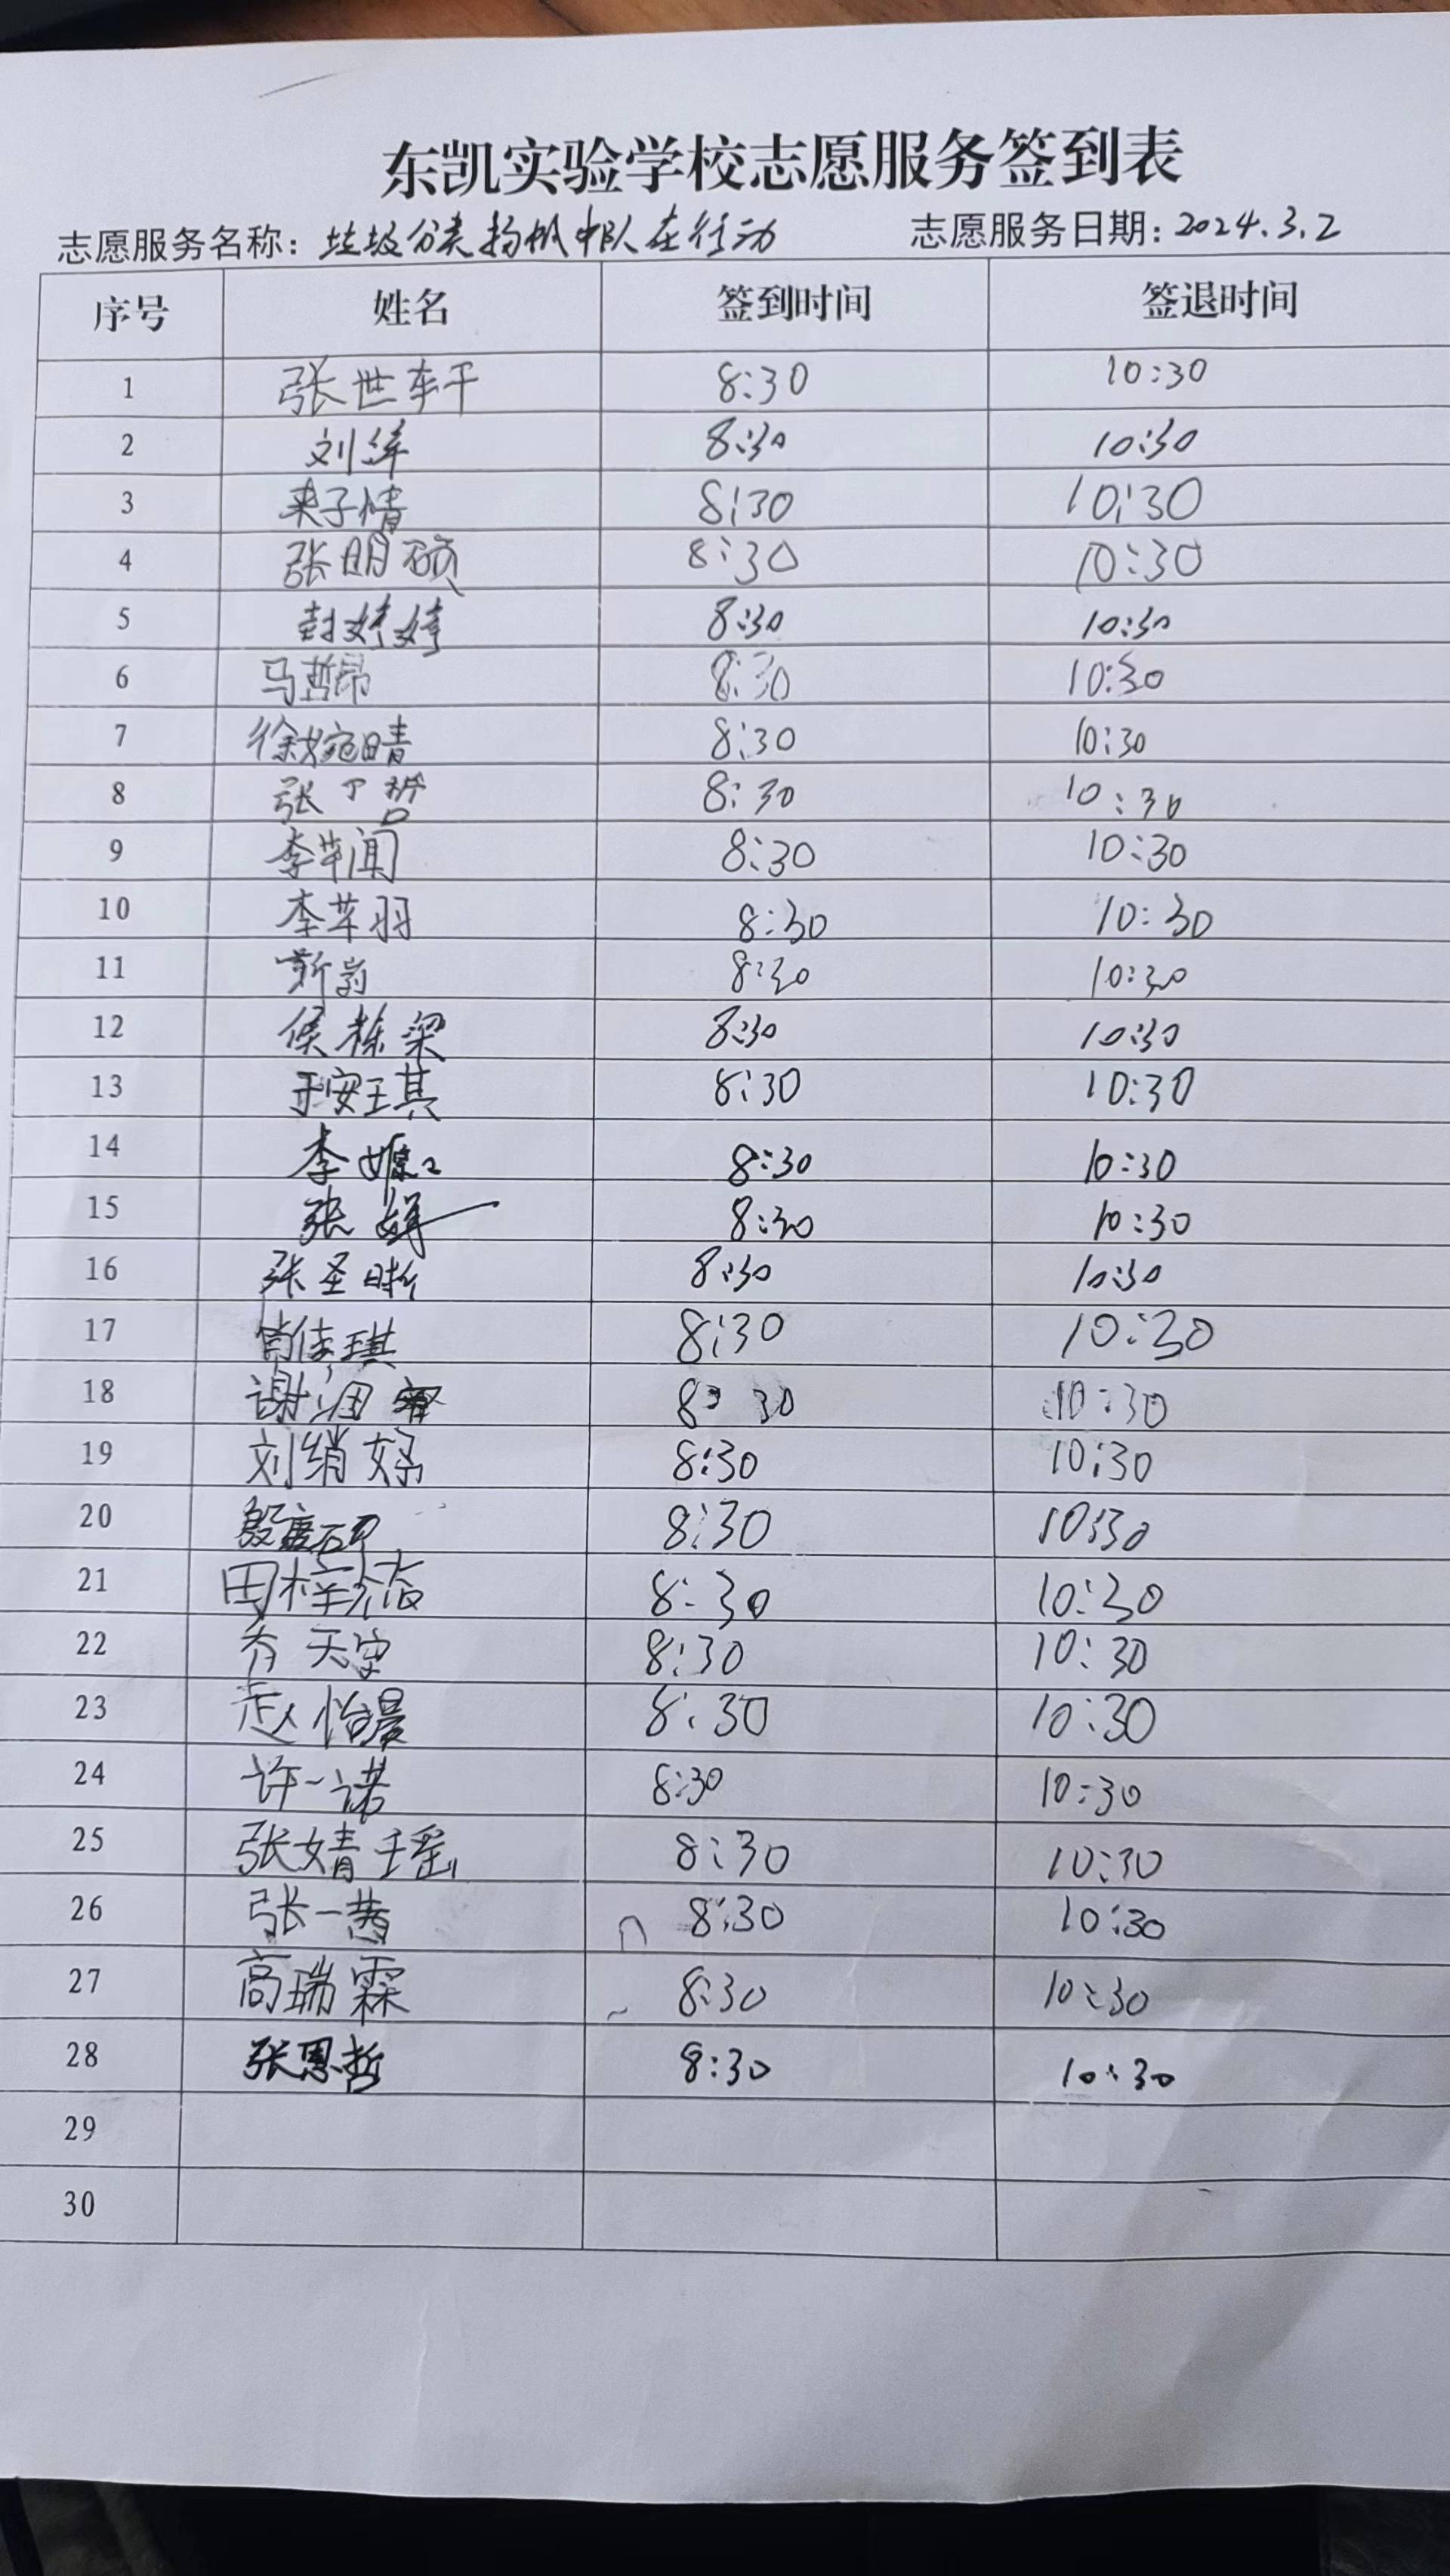 东凯实验学校志愿服务签到表
志愿服务名称: 垃圾分类扬帆中队在行动 志愿服务日期: 2024.3.2
序号 姓名 签到时间 签退时间
1 张世轩 8:30 10:30
2 刘洋 8:30 10:30
3 来子情 8:30 10:30
4 张明硕 8:30 10:30
5 封婷婷 8:30 10:30
6 马哲昂 8:30 10:30
7 徐婉晴 8:30 10:30
8 张丁哲 8:30 10:30
9 李苹闻 8:30 10:30
10 李苹羽 8:30 10:30
11 8:30 10:30
12 侯栋梁 8:30 10:30
13 于安琪 8:30 10:30
14 李嫄 8:30 10:30
15 张 8:30 10:30
16 张圣晰 8:30 10:30
17 肖佳琪 8:30 10:30
18 谢润 8:30 10:30
19 刘绡妤 8:30 10:30
20 8:30 10:30
21 田梓涵 8:30 10:30
22 乔天宇 8:30 10:30
23 赵怡晨 8:30 10:30
24 许一诺 8:30 10:30
25 张婧瑶 8:30 10:30
26 张一茜 8:30 10:30
27 高瑞霖 8:30 10:30
28 张恩哲 8:30 10:30
29
30